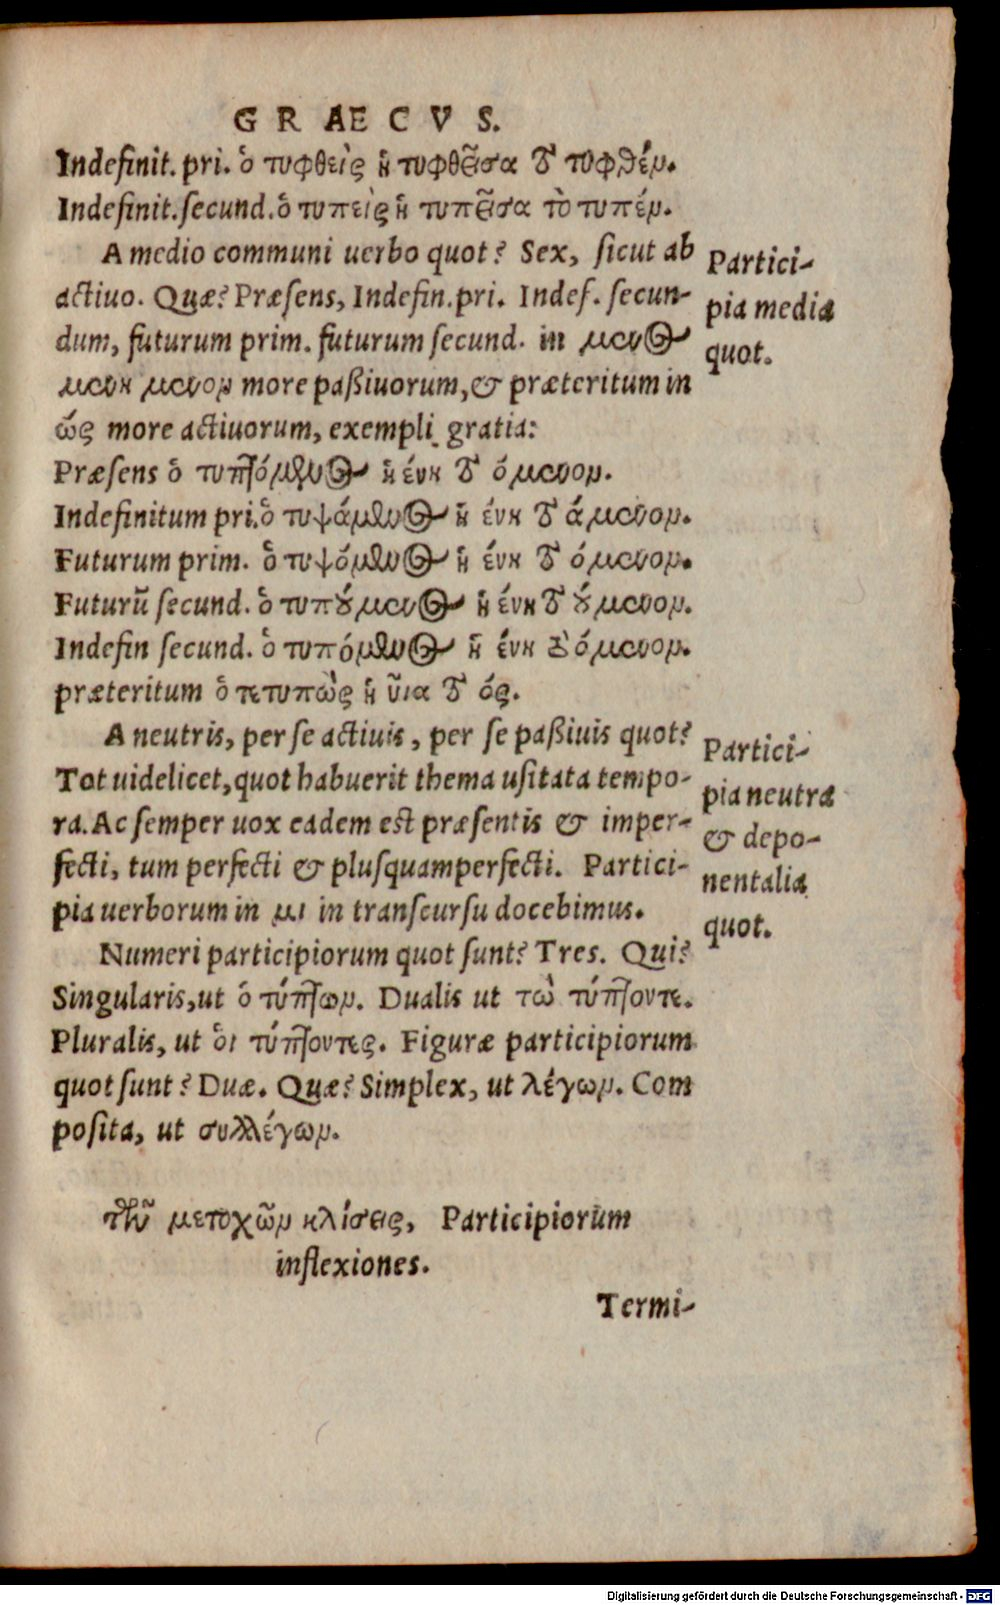 GRAECVS.
Indefinit. pri. ὁ τυφθεὶς ἡ τυφθεῖσα τὸ τυφθέν.
Indefinit. ſecund. ὁ τυπεὶς ἡ τυπεῖσα τὸ τυπέν.
A medio communi uerbo quot? Sex, ſicut ab
actiuo. Quæ? Præſens, Indefin. pri. Indef. ſecun-
dum, futurum prim. futurum ſecund. in μενος
μενη μενον more paßiuorum, & præteritum in
ώς more actiuorum, exempli gratia:
Præſens ὁ τυπτόμενος ἡ ένη τὸ όμενον.
Indefinitum pri. ὁ τυψάμενος ἡ ένη τὸ άμενον.
Futurum prim. ὁ τυψόμενος ἡ ένη τὸ όμενον.
Futurū ſecund. ὁ τυπούμενος ἡ ένη τὸ ούμενον.
Indefin ſecund. ὁ τυπόμενος ἡ ένη τὸ όμενον.
præteritum ὁ τετυπὼς ἡ ῦια τὸ ός.
A neutris, per ſe actiuis, per ſe paßiuis quot?
Tot uidelicet, quot habuerit thema uſitata tempo-
ra. Ac ſemper uox eadem est præſentis & imper-
fecti, tum perfecti & pluſquamperfecti. Partici-
pia uerborum in μι in tranſcurſu docebimus.
Numeri participiorum quot ſunt? Tres. Qui?
Singularis, ut ὁ τύπτων. Dualis ut τὼ τύπτοντε.
Pluralis, ut ὁι τύπτοντες. Figuræ participiorum
quot ſunt? Duæ. Quæ? Simplex, ut λέγων. Com
poſita, ut συλλέγων.
Partici-
pia media
quot.
Partici-
pia neutra
& depo-
nentalia
quot.
τῶν μετοχῶν κλίσεις, Participiorum
inflexiones.
Termi-
Digitalisierung gefördert durch die Deutsche Forschungsgemeinschaft - DFG